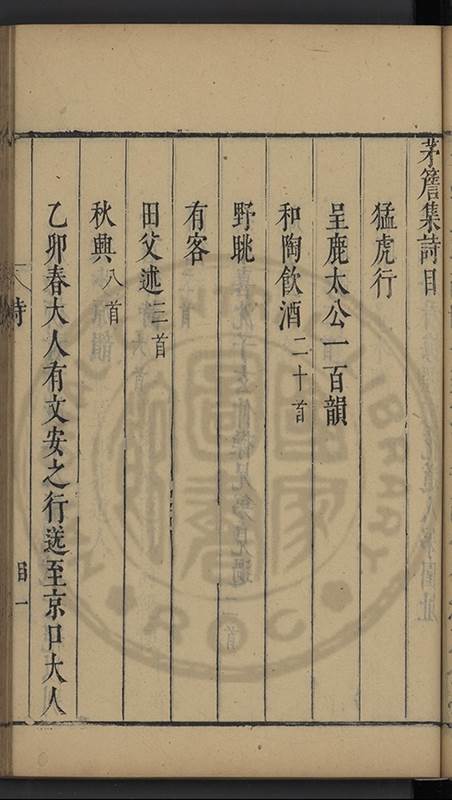 茅簷集詩目
猛虎行
呈鹿太公一百韻
和陶飲酒二十首
野眺
有客
田父述三首
秋興八首
乙卯春大人有文安之行送至京口大人
詩
目一